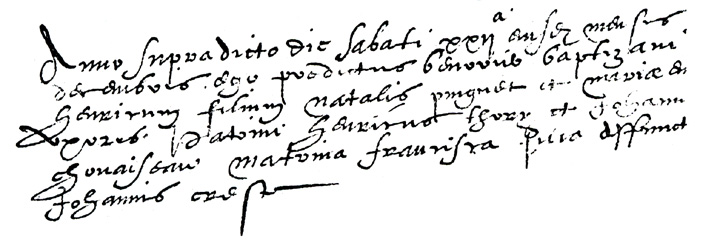 Anno supradicto die sabati xxii a ensez mensis
decembris ego predictus benonus baptizavi
henricum filium natalis pinguet et mariæ en
uxoris patrini henricus thory et Johann
chouaiseau matrina francisca filia deffunct
Johannis crest